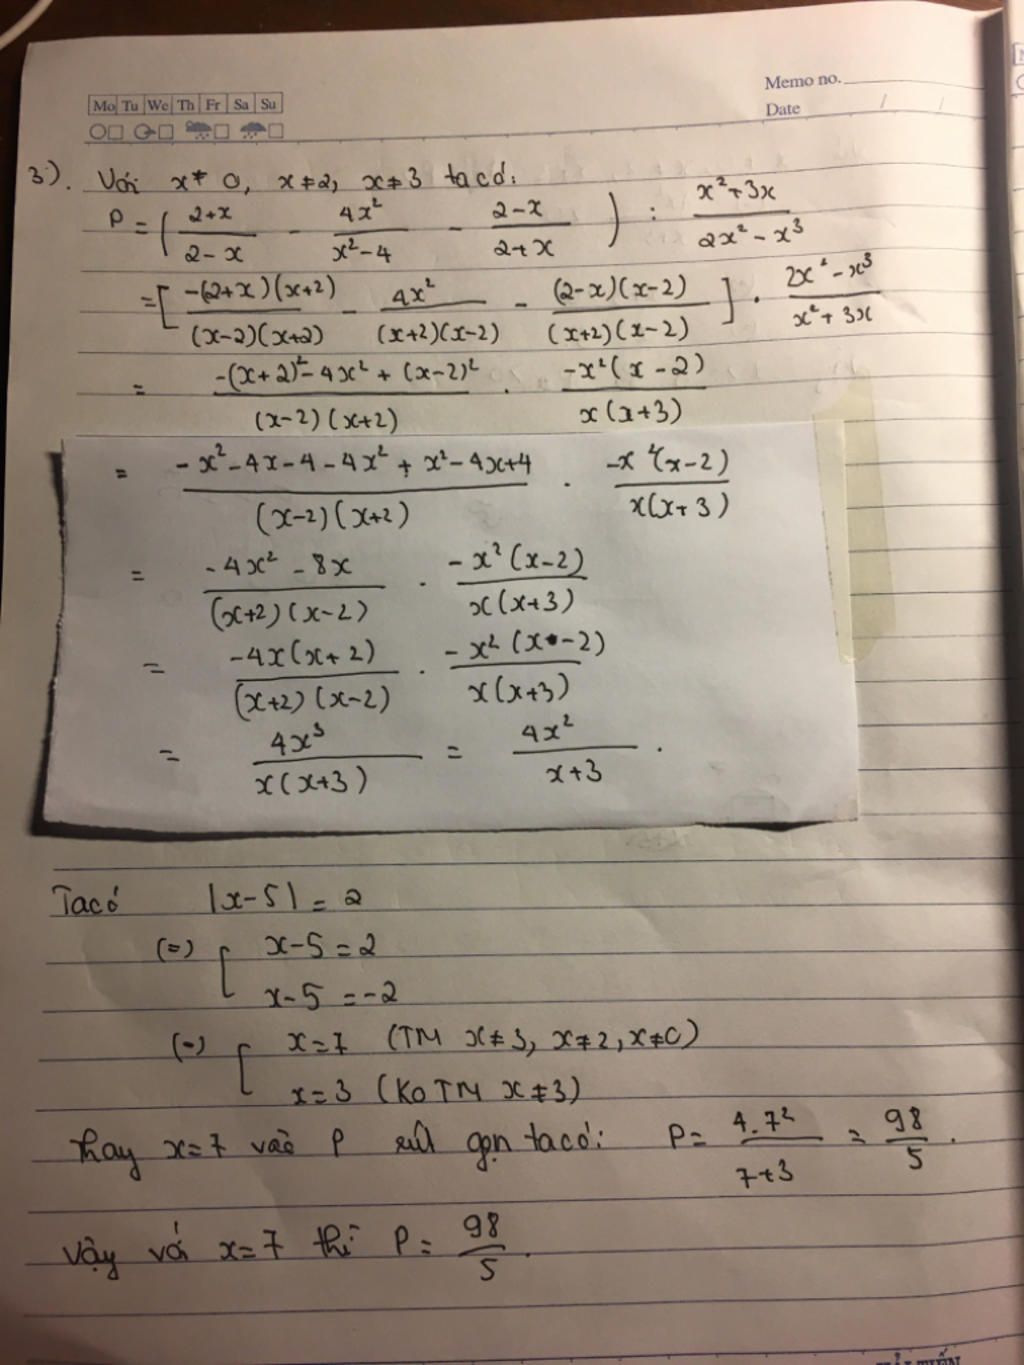 Memo no.
Mo Tu We Th Fr Sa Su
Date / /
3). Với x ≠ 0, x ≠ 2, x ≠ 3 ta có:
P = ( (2+x)/(2-x) - 4x²/(x²-4) - (2-x)/(2+x) ) : (x²+3x)/(2x²-x³)
= [ -(2+x)(x+2)/(x-2)(x+2) - 4x²/(x+2)(x-2) - (2-x)(x-2)/(x+2)(x-2) ] . (2x²-x³)/(x²+3x)
= (-(x+2)²-4x²+(x-2)²)/(x-2)(x+2) . -x²(x-2)/x(x+3)
= (-x²-4x-4-4x²+x²-4x+4)/(x-2)(x+2) . -x²(x-2)/x(x+3)
= (-4x²-8x)/(x+2)(x-2) . -x²(x-2)/x(x+3)
= -4x(x+2)/(x+2)(x-2) . -x²(x-2)/x(x+3)
= 4x³/x(x+3) = 4x²/(x+3) .
Ta có |x-5| = 2
(=) [ x-5 = 2
x-5 = -2
(=) [ x = 7 (TM x≠3, x≠2, x≠0)
x = 3 (KO TM x≠3)
Thay x=7 vào P rút gọn ta có: P = 4.7²/(7+3) = 98/5 .
Vậy với x=7 thì P = 98/5 .